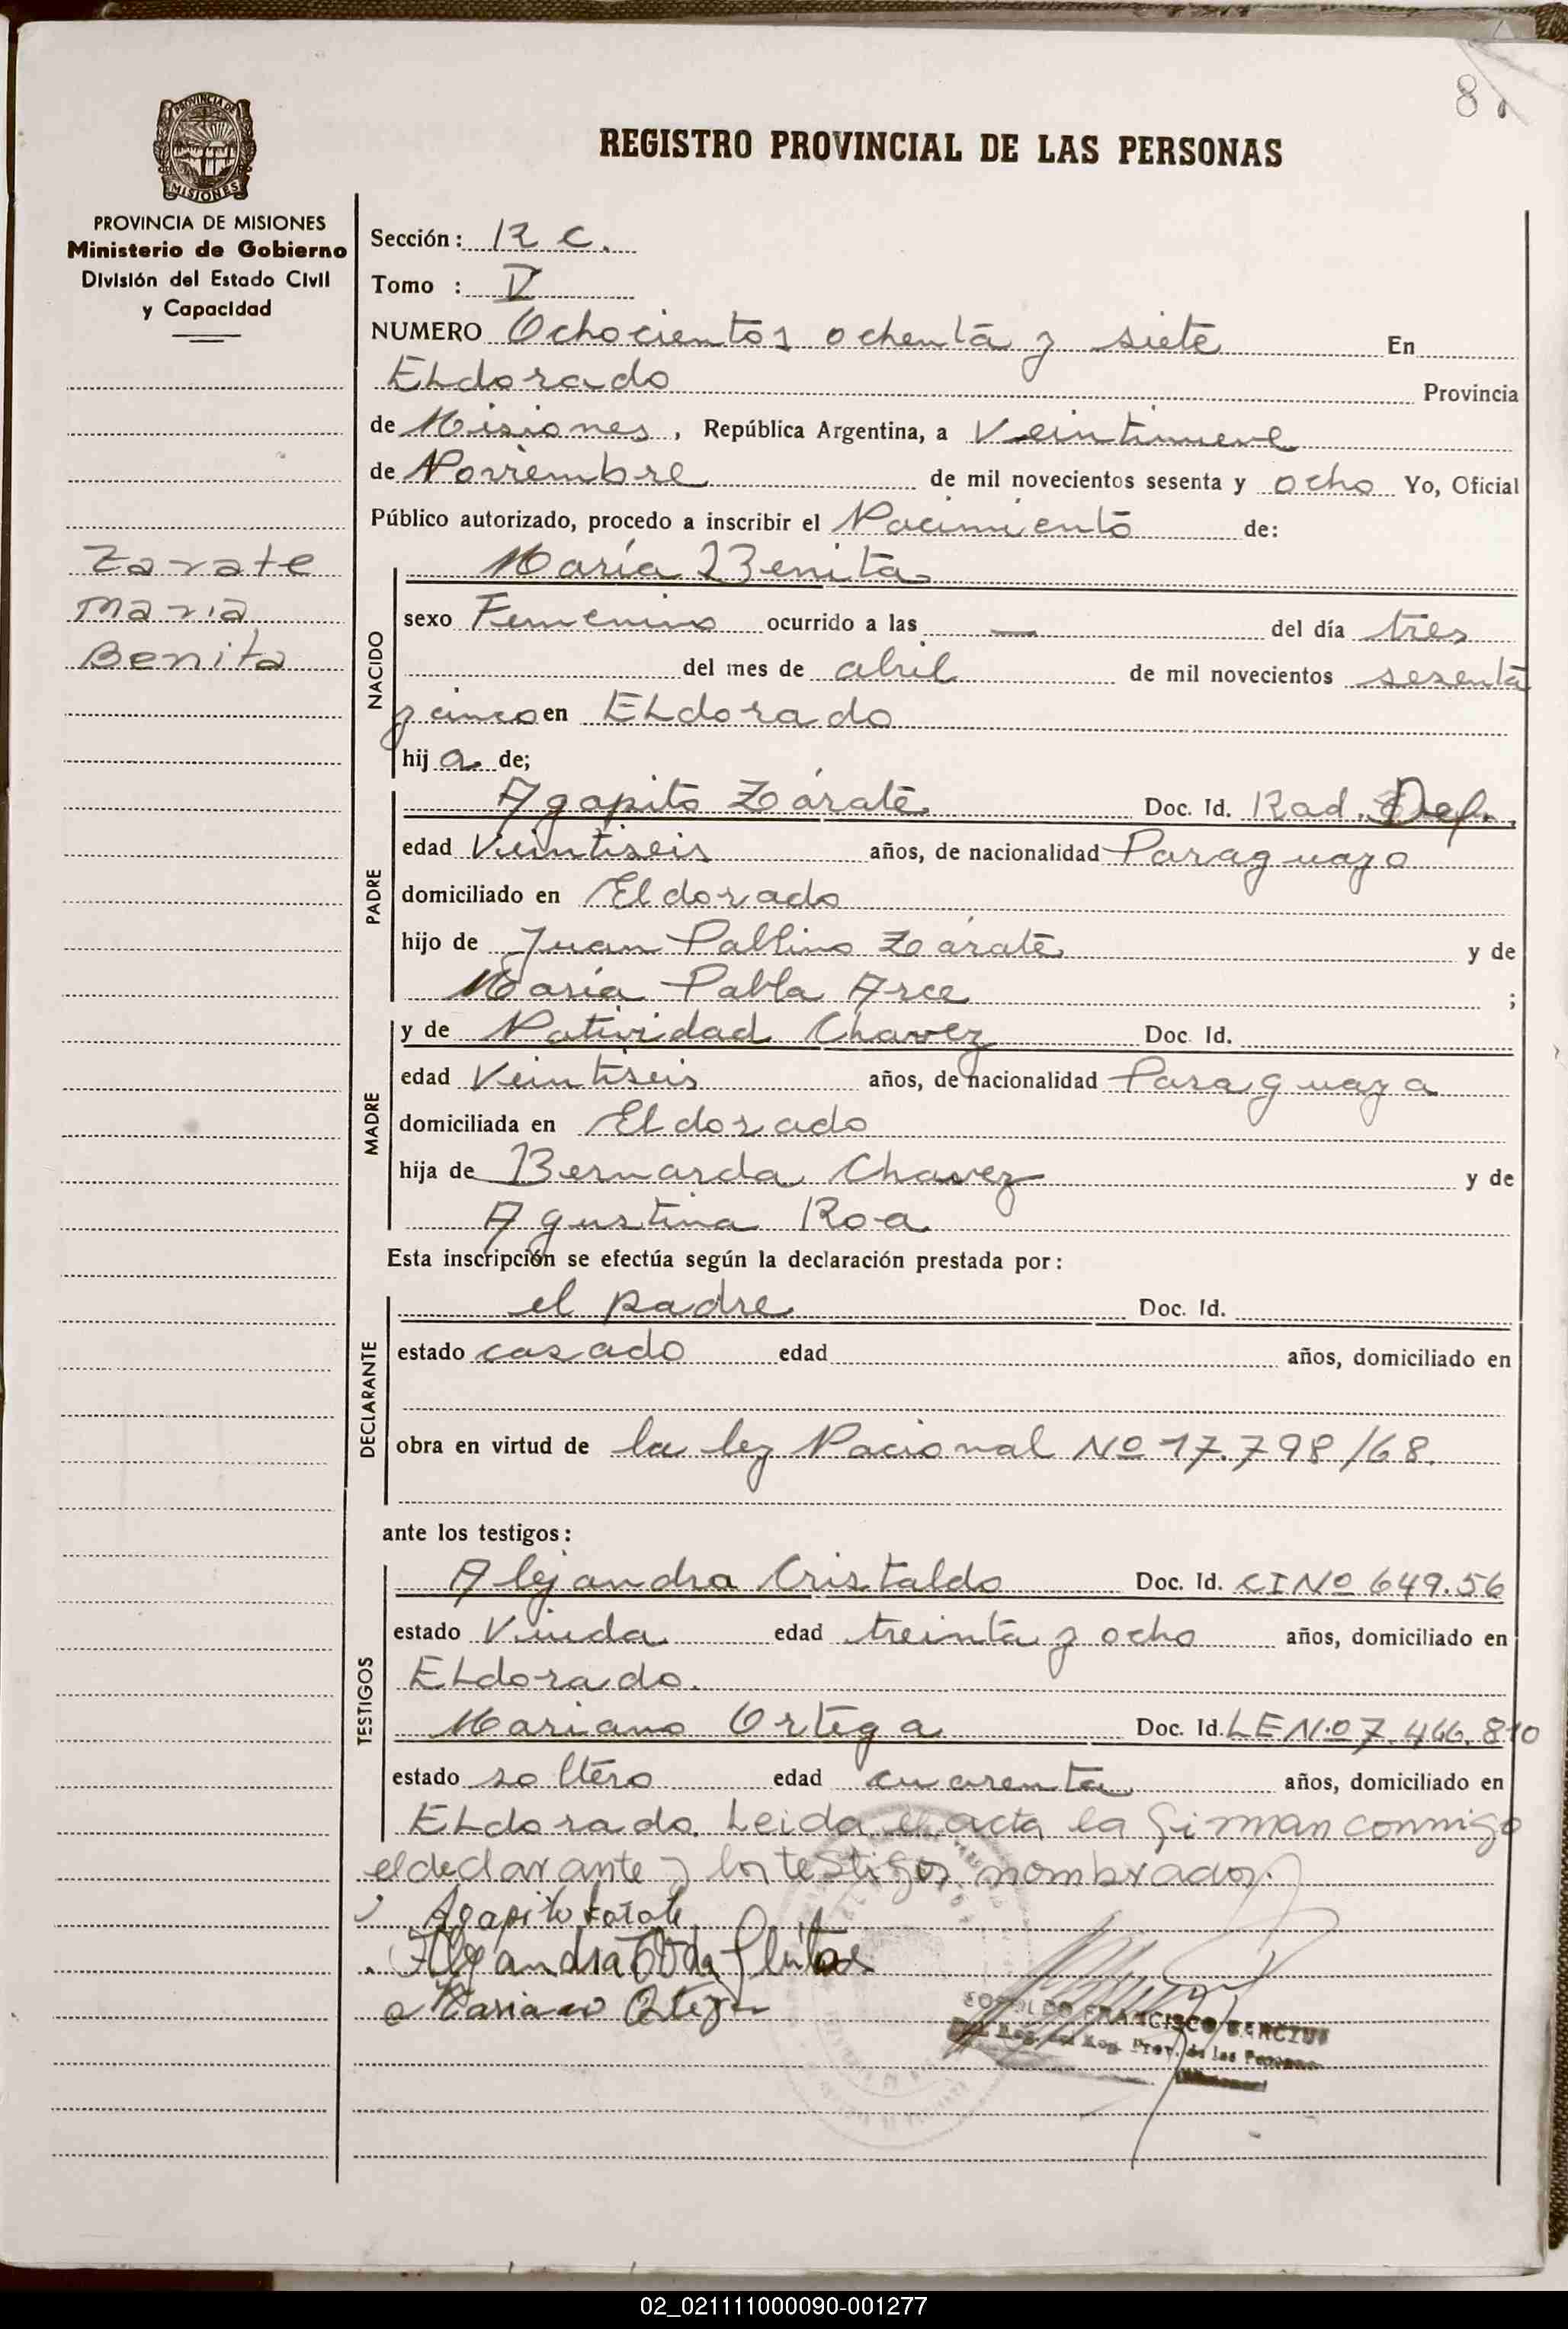 8
REGISTRO PROVINCIAL DE LAS PERSONAS
PROVINCIA DE
MISIONES
PROVINCIA DE MISIONES
Ministerio de Gobierno
División del Estado Civil
y Capacidad
Zarate
Maria
Benita
Sección: R C.
Tomo : V
NUMERO Ochocientos ochenta y siete En
ELdorado Provincia
de Misiones, República Argentina, a Veintinueve
de Noviembre de mil novecientos sesenta y ocho Yo, Oficial
Público autorizado, procedo a inscribir el Nacimiento de:
NACIDO
María Benita
sexo Femenino ocurrido a las — del día tres
del mes de abril de mil novecientos sesenta
y cinco en ELdorado
hija de;
PADRE
Agapito Zárate Doc. Id. Rad. Def.
edad Veintiseis años, de nacionalidad Paraguayo
domiciliado en Eldorado
hijo de Juan Pablino Zárate y de
María Pabla Arce ;
MADRE
y de Natividad Chavez Doc. Id.
edad Veintiseis años, de nacionalidad Paraguaya
domiciliada en Eldorado
hija de Bernarda Chavez y de
Agustina Roa
Esta inscripción se efectúa según la declaración prestada por:
DECLARANTE
el padre Doc. Id.
estado casado edad años, domiciliado en
obra en virtud de la ley Nacional Nº 17.798/68.
ante los testigos:
TESTIGOS
Alejandra Cristaldo Doc. Id. CI Nº 649.56
estado Viuda edad treinta y ocho años, domiciliado en
ELdorado.
Mariano Ortega Doc. Id. LE Nº 7.466.810
estado soltero edad cuarenta años, domiciliado en
ELdorado. Leida el acta la firman conmigo
el declarante y los testigos nombrados.
Agapito Zarate
Alejandra
Mariano Ortega
FRANCISCO
Reg. Prov. de las Personas
(Misiones)
02_021111000090-001277